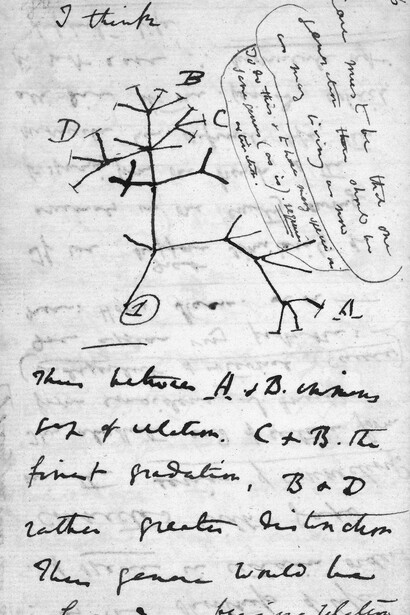 I think
B
C
D
A
1
case must be that one
generation then should be
as many living as now
To do this & to have many species in
same genus (as is) requires
extinction.
Thus between A & B. immens
gap of relation. C & B. The
finest gradation, B & D
rather greater distinction
Thus genera would be
bearing relation